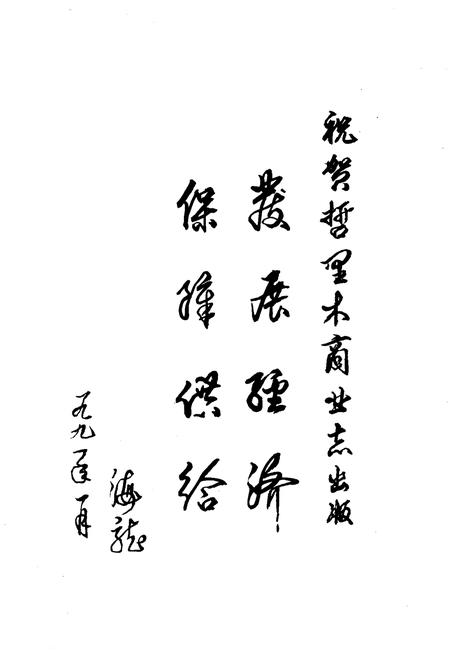 祝贺哲里木商业志出版
發展經济
保障供给
海龙
一九九一年一月